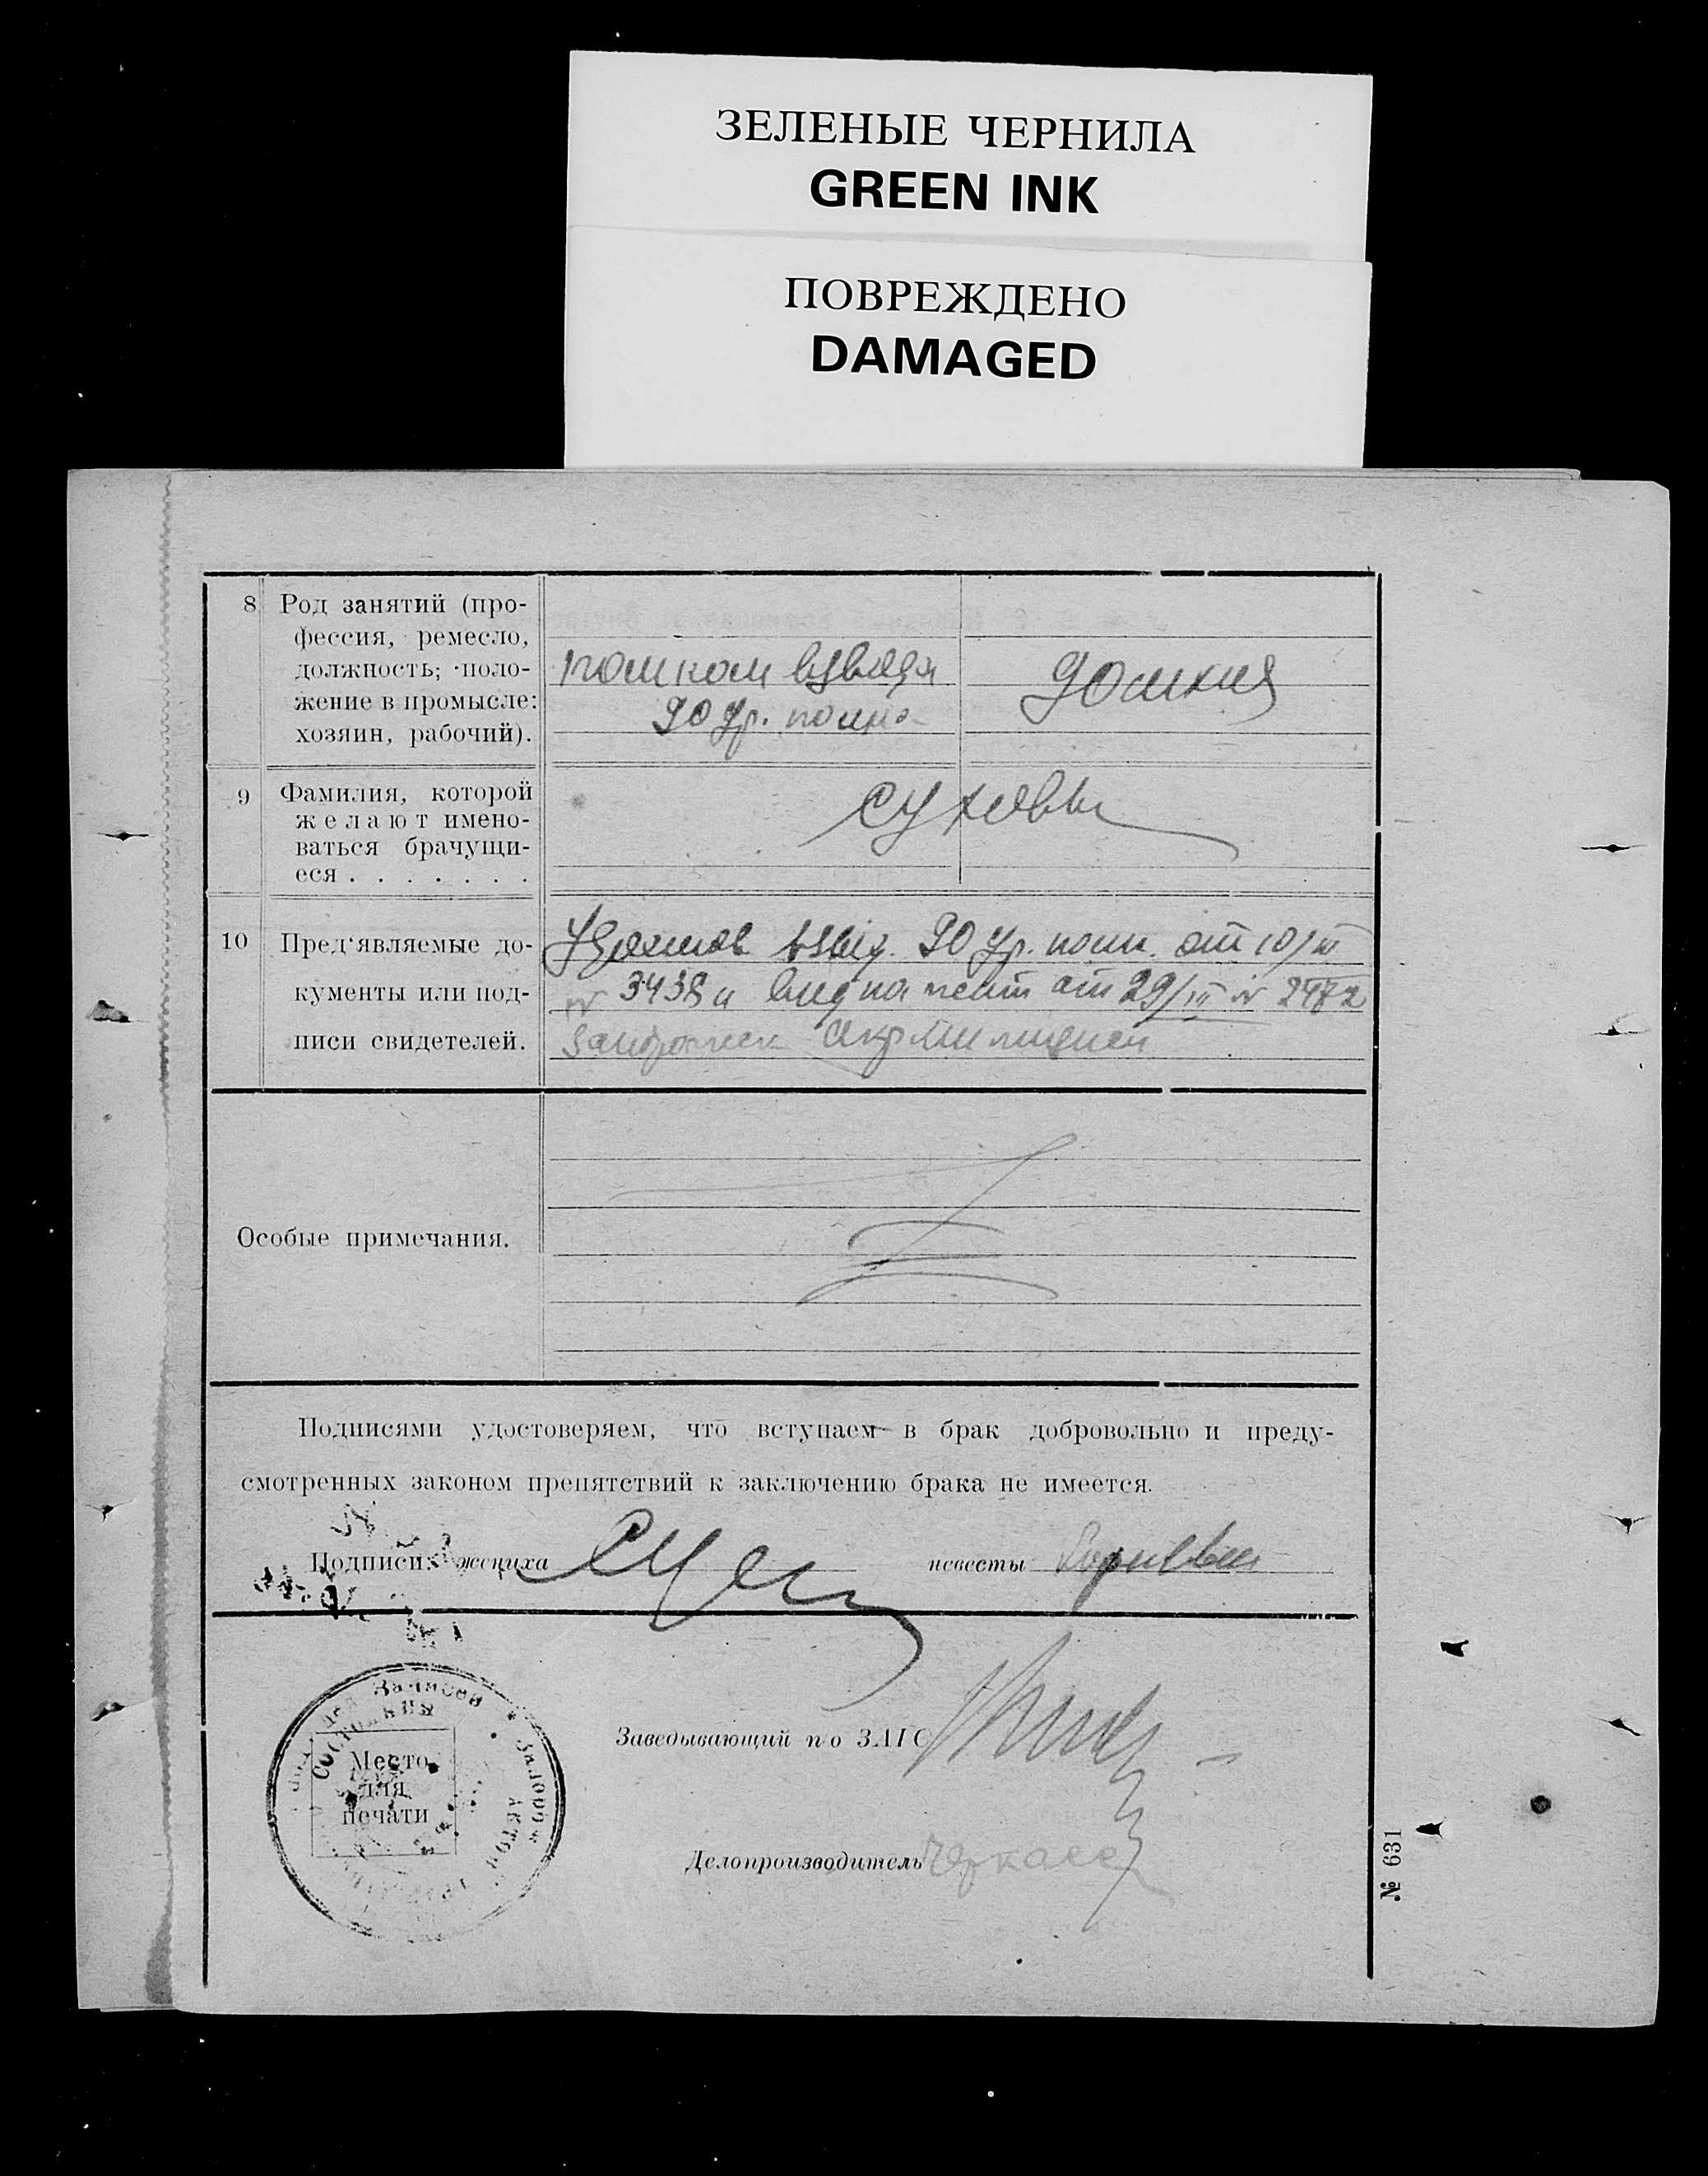 ЗЕЛЕНЫЕ ЧЕРНИЛА
GREEN INK
ПОВРЕЖДЕНО
DAMAGED
8 Род занятий (про-
фессия, ремесло,
должность; поло-
жение в промысле:
хозяин, рабочий).
помком взвода
90
домхоз
9 Фамилия, которой
желают имено-
ваться брачущи-
еся . . . . . . .
Суховы
10 Пред'являемые до-
кументы или под-
писи свидетелей.
90 от 10/III
№ 3438 и вид на жит от 29/III № 2472
Особые примечания.
Подписями удостоверяем, что вступаем в брак добровольно и преду-
смотренных законом препятствий к заключению брака не имеется.
Подписи: жениха невесты
Записей
Место
для
печати
Заведывающий по ЗАГС
Делопроизводитель Черкасс
№ 631